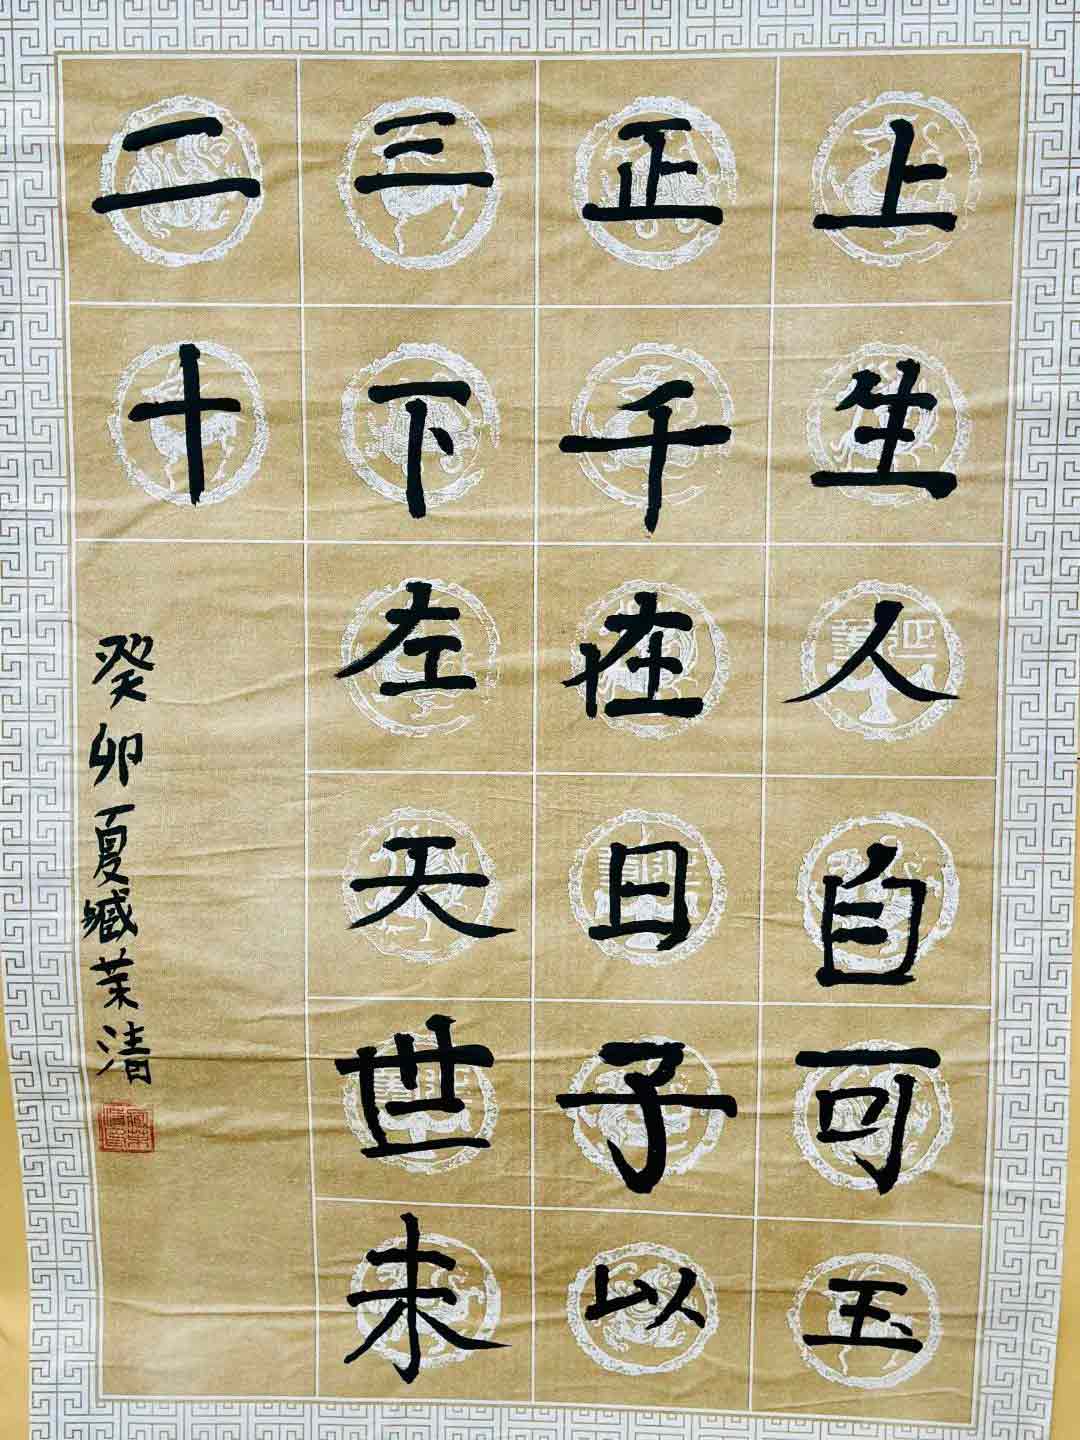 上生人自可玉
正千在日子以
三下左天世未
二十
癸卯夏臧茉清